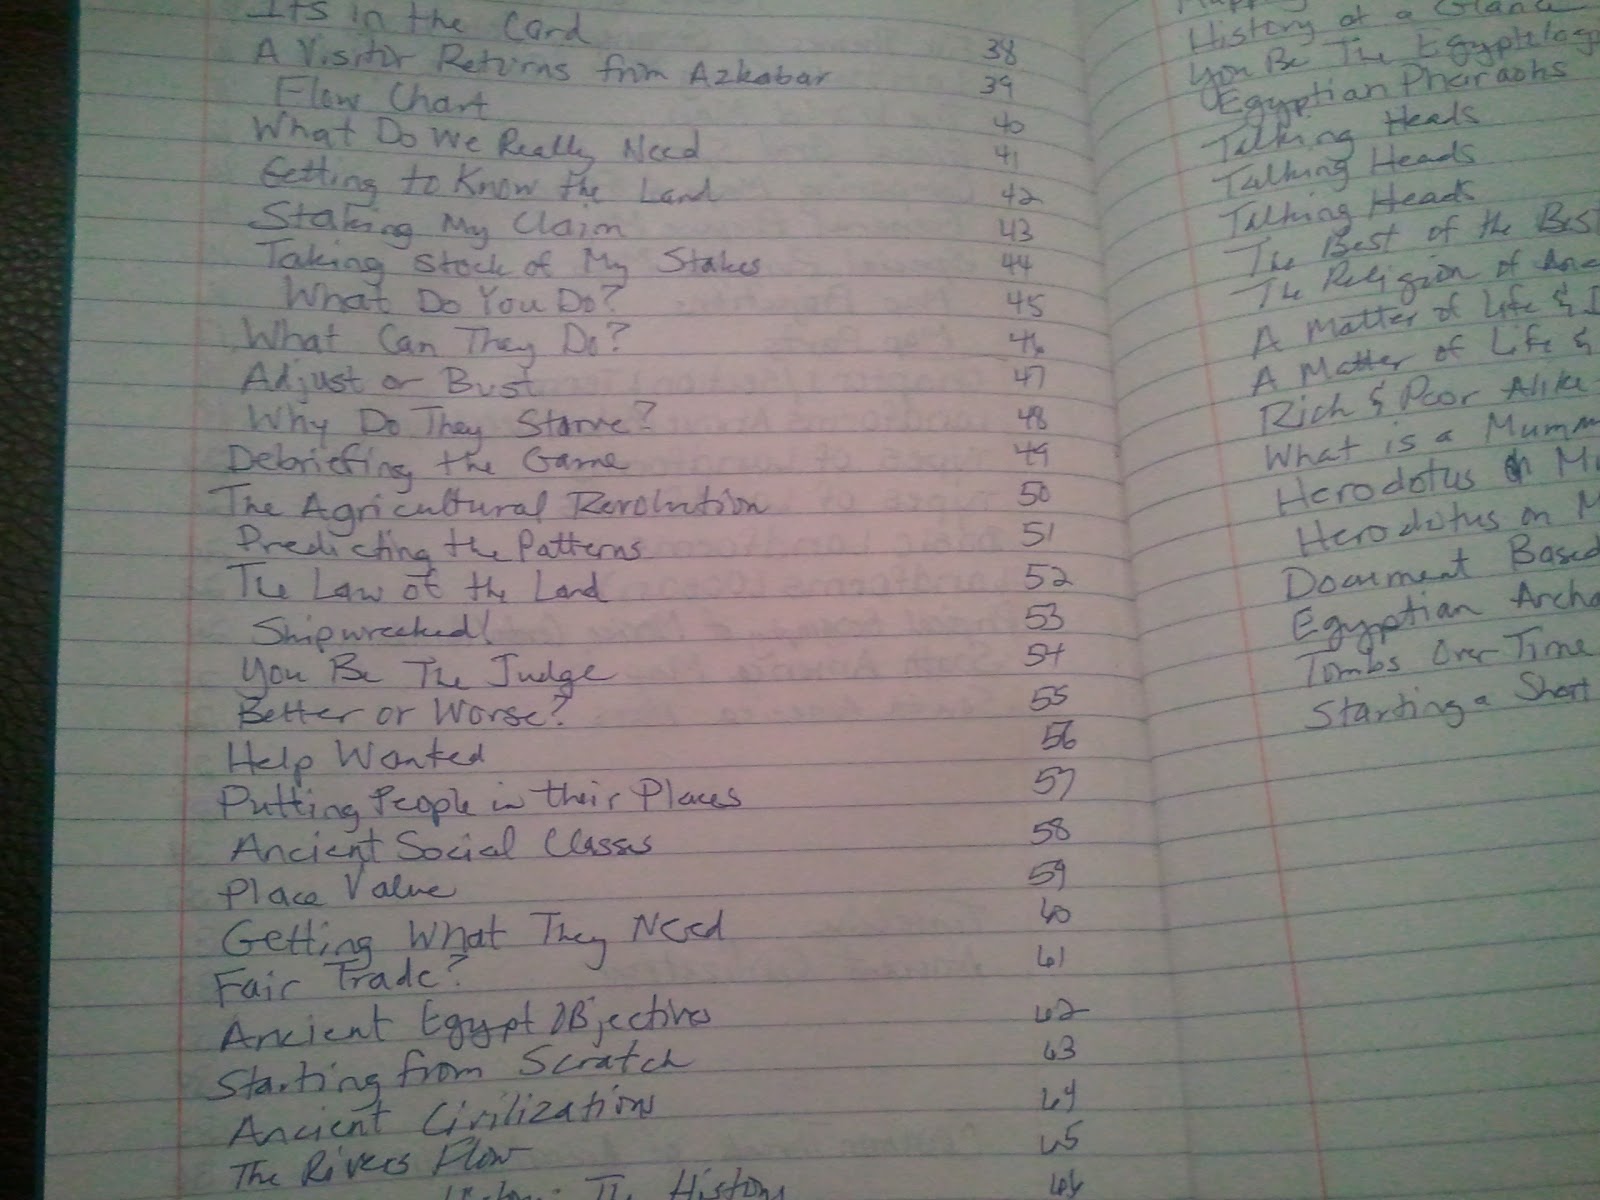 Its in the Card 38
A Visitor Returns from Azkabar 39
Flow Chart 40
What Do We Really Need 41
Getting to Know the Land 42
Staking My Claim 43
Taking Stock of My Stakes 44
What Do You Do? 45
What Can They Do? 46
Adjust or Bust 47
Why Do They Starve? 48
Debriefing the Game 49
The Agricultural Revolution 50
Predicting the Patterns 51
The Law of the Land 52
Shipwrecked! 53
You Be The Judge 54
Better or Worse? 55
Help Wanted 56
Putting People in their Places 57
Ancient Social Classes 58
Place Value 59
Getting What They Need 60
Fair Trade? 61
Ancient Egypt Objectives 62
Starting from Scratch 63
Ancient Civilizations 64
The Rivers Flow 65
History 66
History at a Glance
You Be The Egyptolog
Egyptian Pharaohs
Talking Heads
Talking Heads
Talking Heads
The Best of the Best
The Religion of Anc
A Matter of Life &
A Matter of Life &
Rich & Poor Alike
What is a Mumm
Herodotus on Mu
Herodotus on M
Document Based
Egyptian Archa
Tombs Over Time
Starting a Short